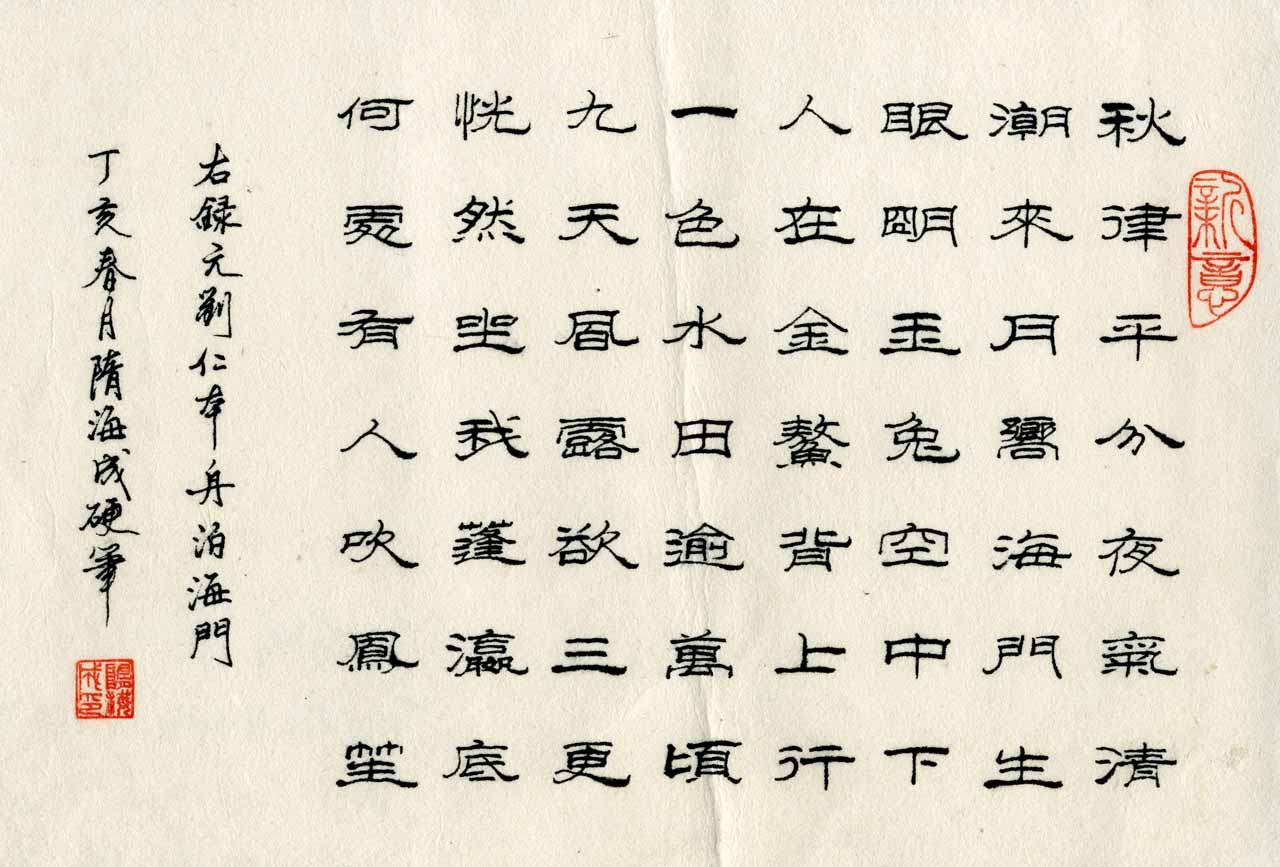 新意
秋律平分夜氣清
潮來月嚮海門生
眼朙玉兔空中下
人在金鰲背上行
一色水田逾萬頃
九天風露欲三更
恍然坐我蓬瀛底
何處有人吹鳳笙
右録元劉仁本舟泊海門
丁亥春月隋海成硬筆